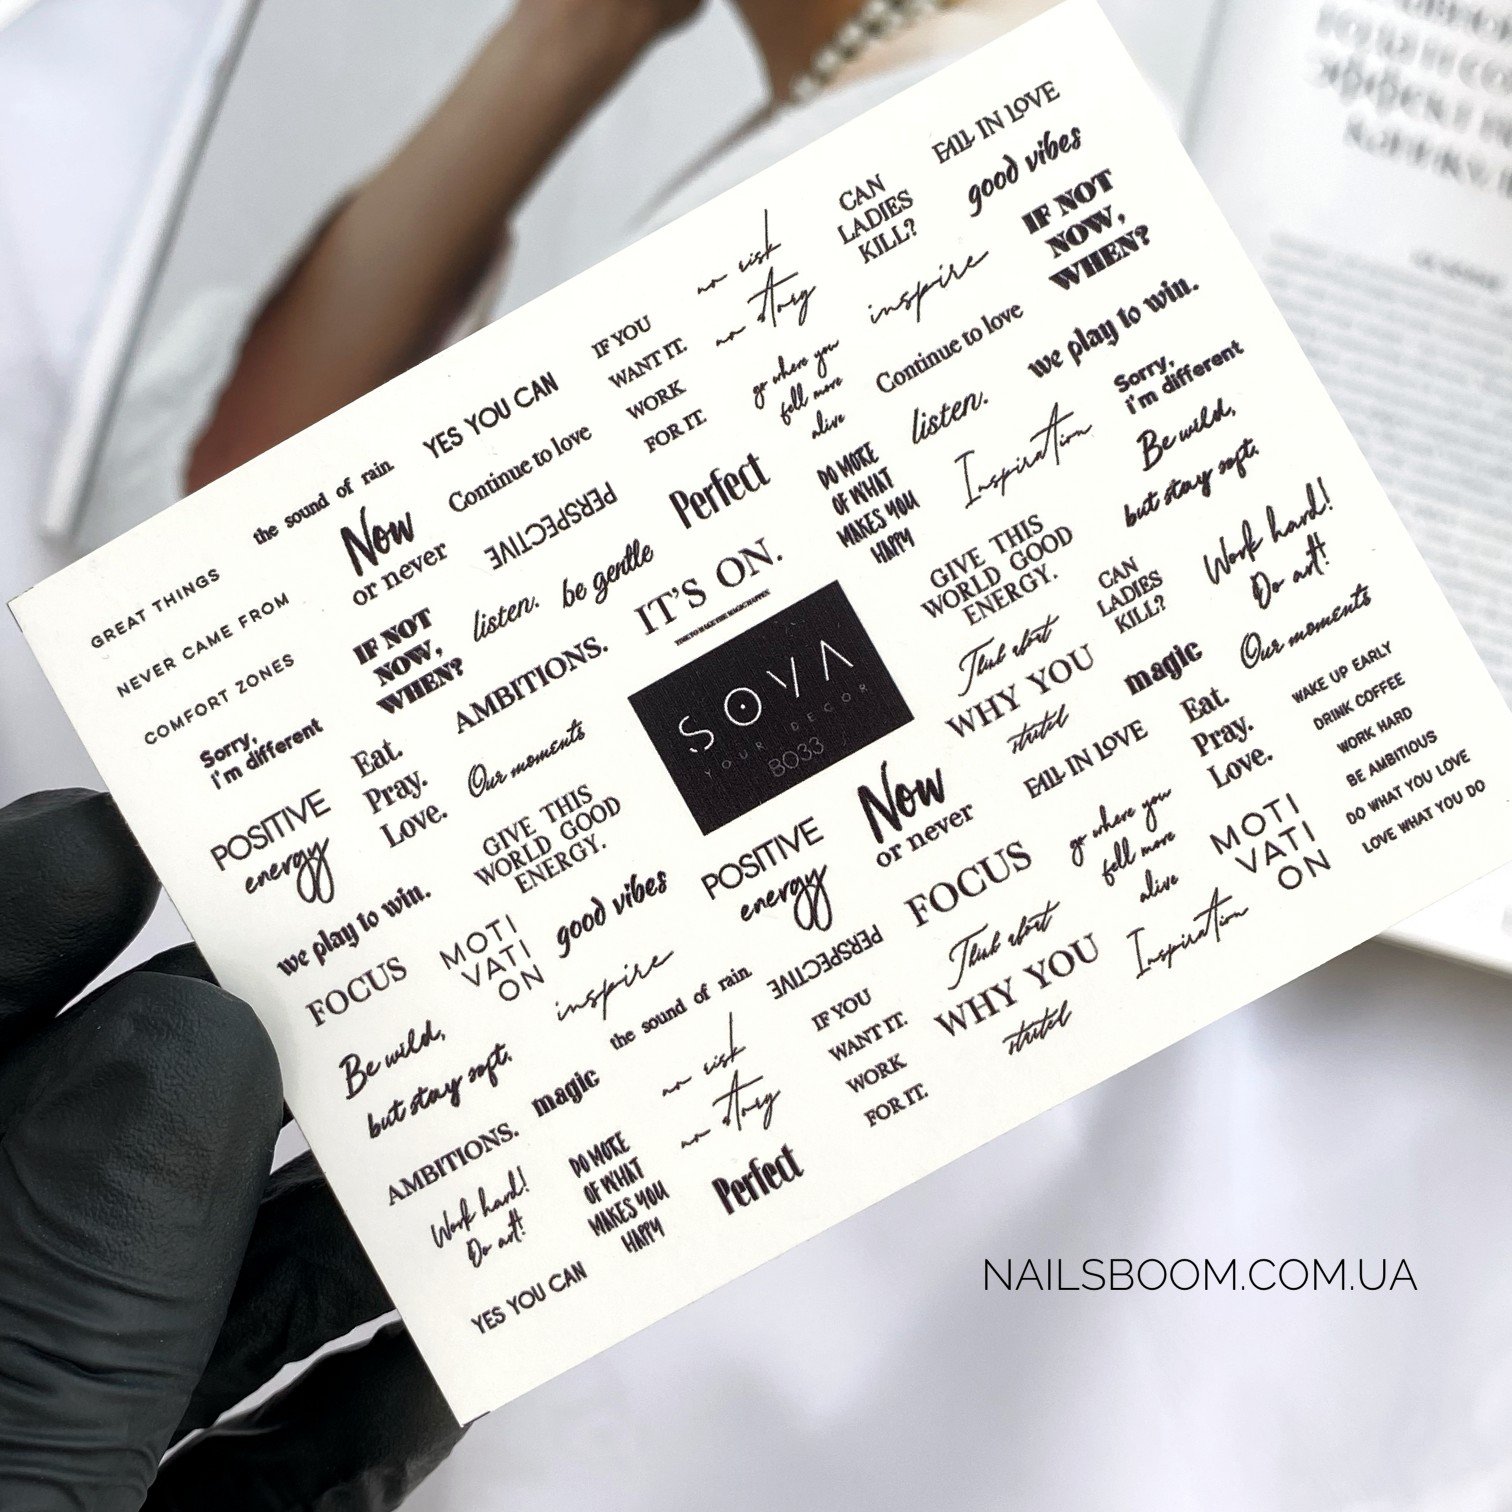 FALL IN LOVE
good vibes
CAN
LADIES
KILL?
IF NOT
NOW,
WHEN?
no risk
no story
inspire
IF YOU
WANT IT.
WORK
FOR IT.
go where you
fell more
alive
Continue to love
we play to win.
YES YOU CAN
listen.
Sorry,
i'm different
the sound of rain
Continue to love
Perfect
DO MORE
OF WHAT
MAKES YOU
HAPPY
Inspiration
Be wild,
but stay soft.
Now
or never
PERSPECTIVE
GREAT THINGS
NEVER CAME FROM
COMFORT ZONES
IF NOT
NOW,
WHEN?
listen.
be gentle
IT'S ON.
TIME TO MAKE THE MAGIC HAPPEN
GIVE THIS
WORLD GOOD
ENERGY.
CAN
LADIES
KILL?
Work hard!
Do art!
AMBITIONS.
SOVA
YOUR DECOR
8033
Think about
WHY YOU
started
magic
Our moments
Sorry,
i'm different
Eat.
Pray.
Love.
Our moments
FALL IN LOVE
Eat.
Pray.
Love.
WAKE UP EARLY
DRINK COFFEE
WORK HARD
BE AMBITIOUS
DO WHAT YOU LOVE
LOVE WHAT YOU DO
POSITIVE
energy
GIVE THIS
WORLD GOOD
ENERGY.
POSITIVE
energy
Now
or never
go where you
fell more
alive
MOTI
VATI
ON
we play to win.
FOCUS
MOTI
VATI
ON
good vibes
FOCUS
inspire
PERSPECTIVE
Think about
WHY YOU
started
Inspiration
Be wild,
but stay soft.
the sound of rain
IF YOU
WANT IT.
WORK
FOR IT.
magic
no risk
no story
AMBITIONS.
Work hard!
Do art!
DO MORE
OF WHAT
MAKES YOU
HAPPY
Perfect
YES YOU CAN
NAILSBOOM.COM.UA